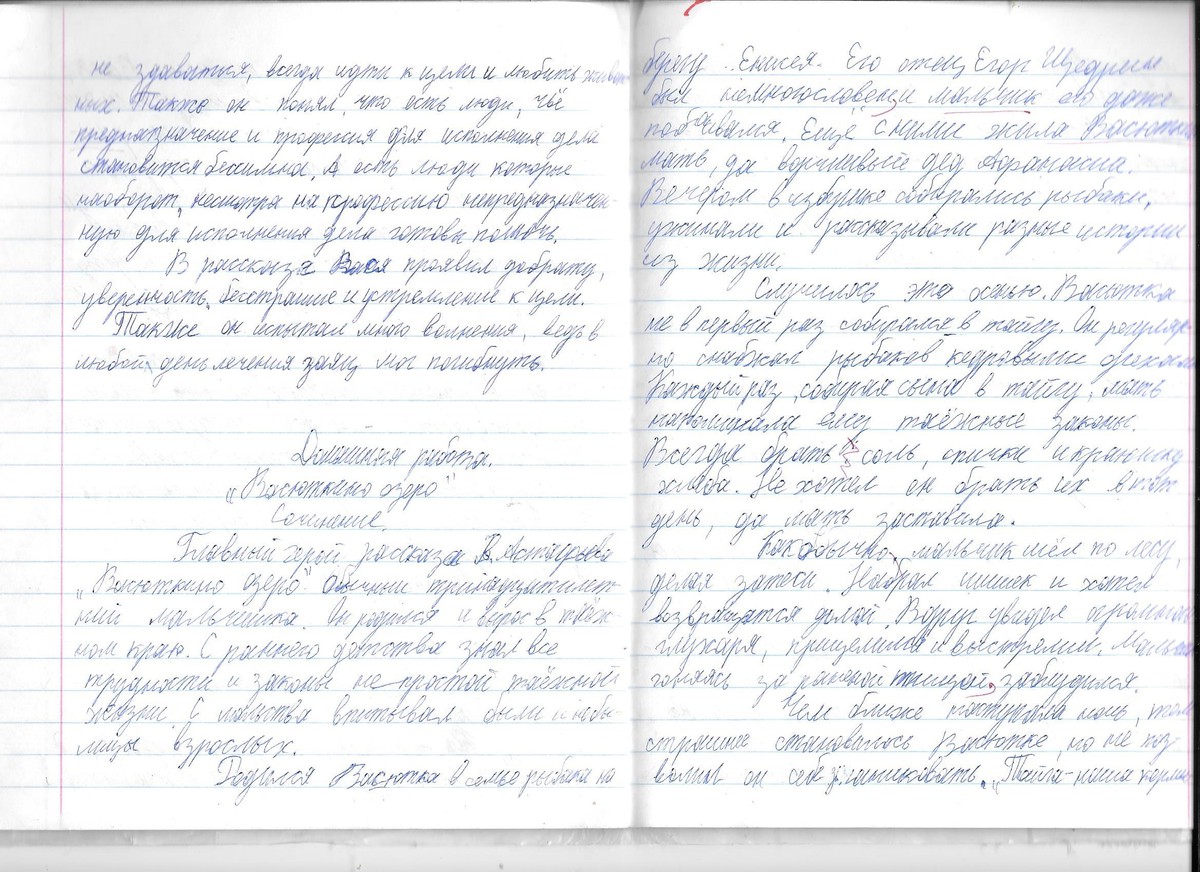 не здаватся, всегда идти к цели и любить живот
ных. Также он понял, что есть люди, чьё
предназначение и професия для исполнения дела
становится бессильна. А есть люди которые
наоборот, несмотря на професссию непредназначен-
ную для исполнения дела готовы помочь.
В рассказе Вася проявил доброту,
уверенность, бесстрашие и устремление к цели.
Также он испытал много волнения, ведь в
любой день лечения заяц мог погибнуть.
Домашняя работа.
„Васюткино озеро"
Сочинение.
Главный герой рассказа В. Астафьева
„Васюткино озеро" обычный тринадцатилет-
ний мальчишка. Он родился и вырос в таёж-
ном краю. С раннего детства знал все
трудности и законы не простой таёжной
жизни. С мальства впитывал были и небы-
лицы взрослых.
Родился Васютка в семье рыбака на
берегу Енисея. Его отец Егор Щедрин
был немногословен и мальчик его даже
побаивался. Ещё с ними жила Васютки
мать, да ворчливый дед Афанасий.
Вечером в избушке собирались рыбаки,
ужинали и рассказывали разные истории
из жизни.
Случилось эта осенью. Васютка
не в первый раз собирался в тайгу. Он регуляр-
но снабжал рыбаков кедровыми орехами
Каждый раз, собирая сына в тайгу, мать
напоминала ему таёжные законы.
Всегда брать соль, спички и краюшку
хлеба. Не хотел он брать их в тот
день, да мать заставила.
Как обычно, мальчик шёл по лесу,
делая затеси. Набрал шишек и хотел
возвращатся домой. Вдруг увидел огромного
глухаря, прицелился и выстрелил.
гоняясь за раненой птицой, заблудился.
Чем ближе наступала ночь, тем
страшнее становилось Васютке, но не поз-
волил он себе паниковать. „Тайга-наша кормил